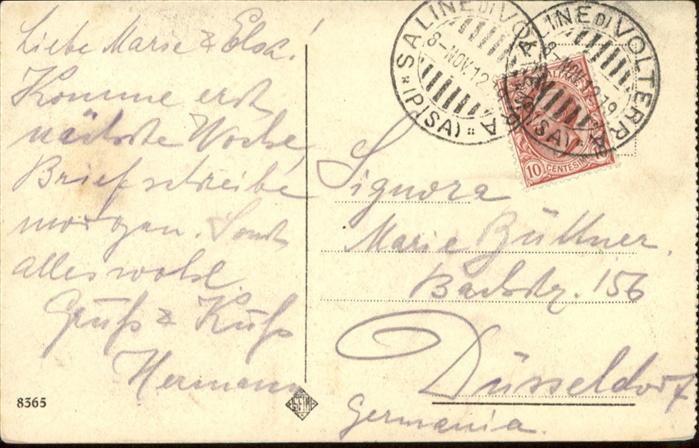 Liebe Marie & Elsa!
Komme erst
nächste Woche
Brief schreibe
morgen. Sonst
alles wohl.
Gruß & Kuß
Hermann
8365
SALINE DI VOLTERRA
8-NOV.12
* (PISA) *
SALINE DI VOLTERRA
8-NOV.12 19
(PISA) *
10 CENTESIMI
Signora
Marie Büttner.
156
Düsseldorf
Germania.